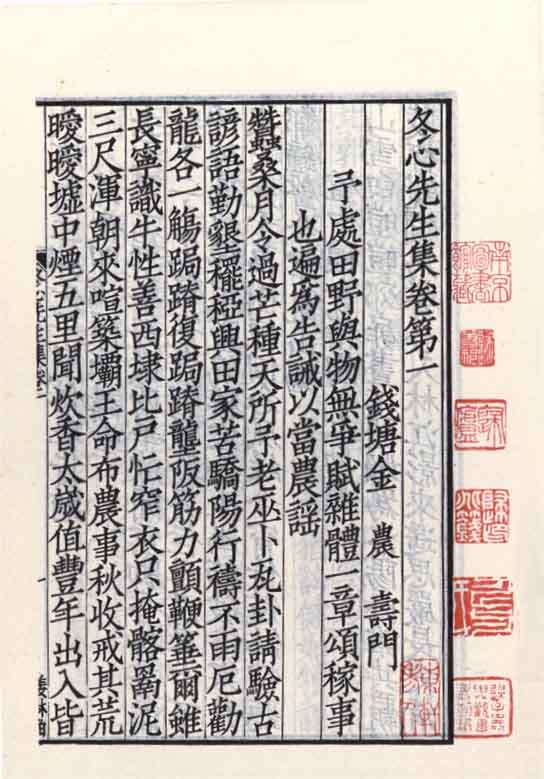 冬心先生集卷第一
錢塘金 農 壽門
予處田野與物無爭賦雜體一章頌稼事
也遍為告誡以當農謡
蠶桒月令過芒種天所予老巫卜瓦卦請驗古
諺語勤墾䆉稏興田家苦驕陽行禱不雨厄勸
龍各一觴跼蹐復跼蹐壟阪筋力顫鞭箠爾雖
長寧識牛性善西埭比戶忙窄衣只掩髂罱泥
三尺渾朝來喧築壩王命布農事秋收戒其荒
曖曖墟中煙五里聞炊香太歲值豐年出入皆